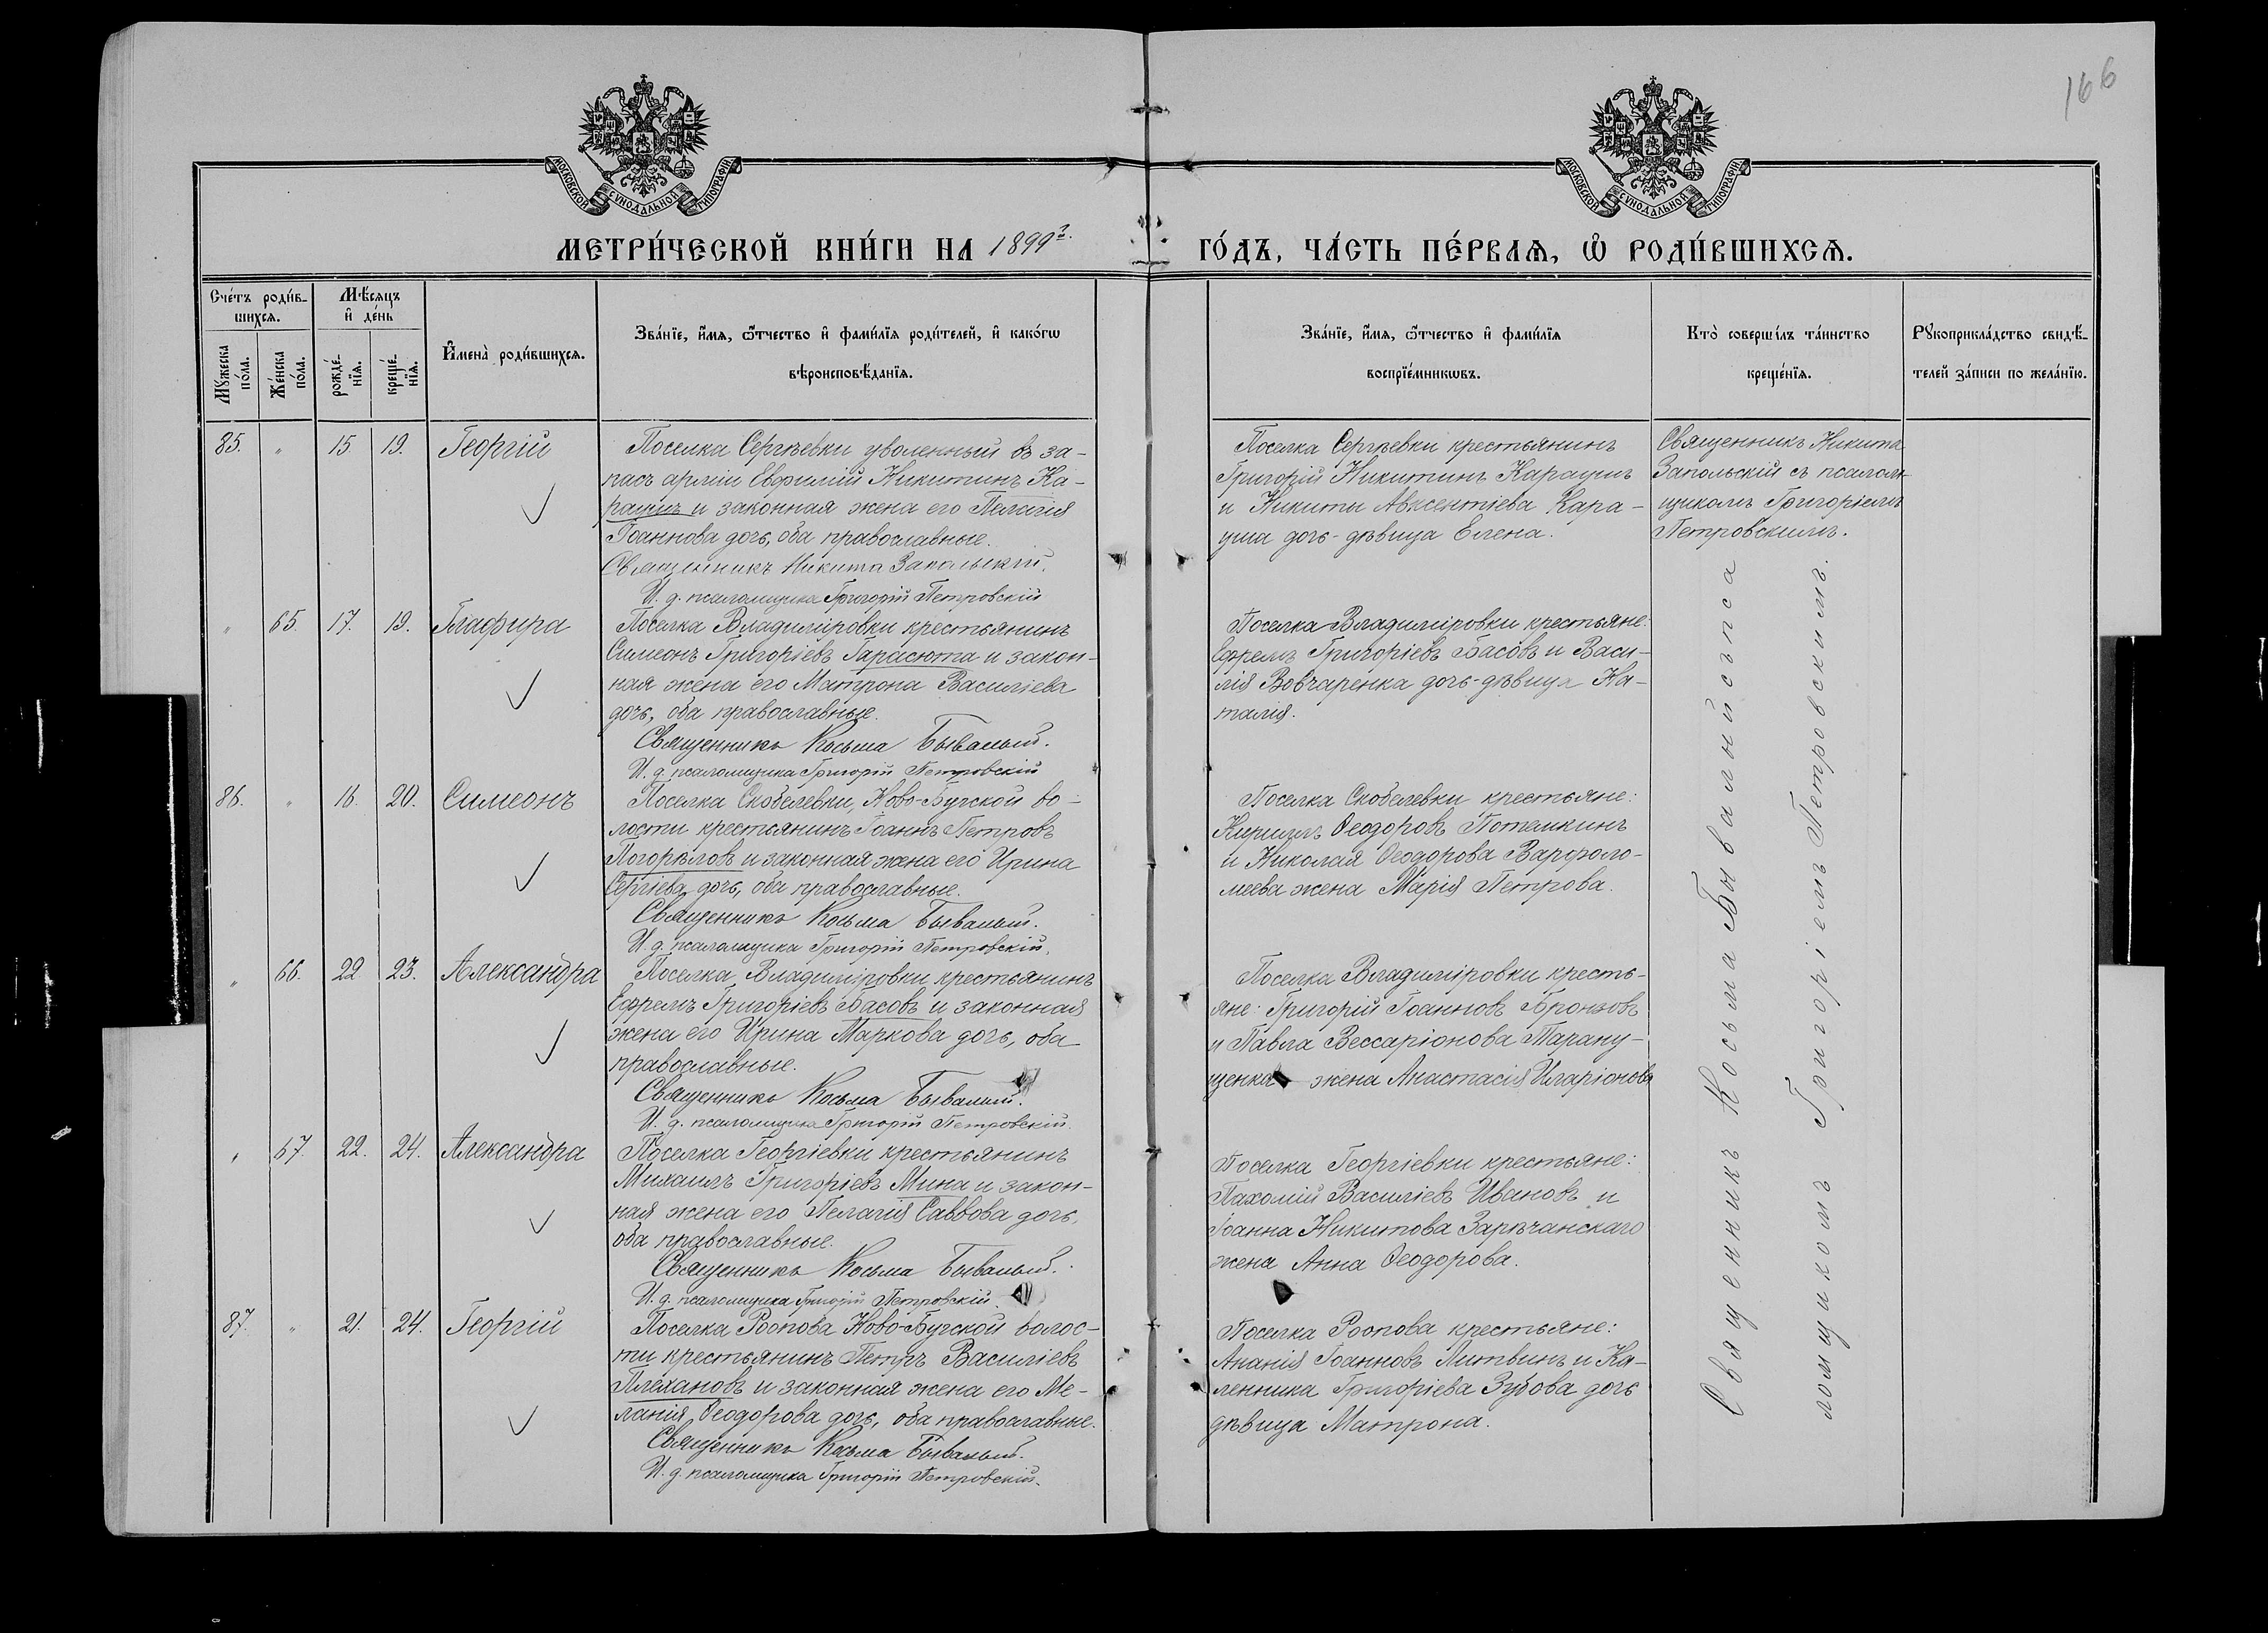 166
МОСКОВСКОЙ СУНОДАЛЬНОЙ ТИПОГРАФІИ
МОСКОВСКОЙ СУНОДАЛЬНОЙ ТИПОГРАФІИ
МЕТРИ́ЧЕСКОЙ КНИ́ГИ НА 1899 г. ГО́ДЪ, ЧА́СТЬ ПЕ́РВАѦ, Ѿ РОДИ́ВШИХСѦ.
Сче́тъ роди́в-
шихсѧ.
Мꙋжеска по́ла.
Же́нска по́ла.
Мѣ́сяцъ
и҆ де́нь
рожде́-
нїѧ.
креще́-
нїѧ.
И҆мена̀ роди́вшихсѧ.
Зва́нїе, и҆́мѧ, ѻ҆́тчество и҆ фами́лїѧ роди́телей, и҆ како́гѡ
вѣроисповѣ́данїѧ.
Зва́нїе, и҆́мѧ, ѻ҆́тчество и҆ фами́лїѧ
воспрїе́мникѡвъ.
Кто̀ соверша́лъ та́инство
креще́нїѧ.
Рꙋкоприкла́дство свидѣ́-
телей за́писи по жела́нїю.
85. " 15. 19. Георгій
Поселка Сергѣевки уволенный въ за-
пасъ арміи Евфимій Никитинъ Ка-
раушъ и законная жена его Пелагія
Іоаннова дочь, оба православные.
Священникъ Никита Запольскій.
И. д. псаломщика Григорій Петровскій
Поселка Сергѣевки крестьянинъ
Григорій Никитинъ Караушъ
и Никиты Авксентіева Кара-
уша дочь-дѣвица Елена.
Священникъ Никита
Запольскій съ псалом-
щикомъ Григоріемъ
Петровскимъ.
" 65. 17. 19. Глафира
Поселка Владиміровки крестьянинъ
Симеонъ Григоріевъ Гарасюта и закон-
ная жена его Матрона Василіева
дочь, оба православные.
Священникъ Косьма Бывалый.
И. д. псаломщика Григорій Петровскій
Поселка Владиміровки крестьяне:
Ефремъ Григоріевъ Басовъ и Васи-
лія Вовчаренка дочь-дѣвица На-
талія.
86. " 16. 20. Симеонъ
Поселка Скобелевки, Ново-Бугской во-
лости крестьянинъ Іоаннъ Петровъ
Погорѣловъ и законная жена его Ирина
Сергіева дочь, оба православные.
Священникъ Косьма Бывалый.
И. д. псаломщика Григорій Петровскій.
Поселка Скобелевки крестьяне:
Кириллъ Ѳеодоровъ Потемкинъ
и Николая Ѳеодорова Варфоло-
меева жена Марія Петрова.
" 66. 22 23. Александра
Поселка Владиміровки крестьянинъ
Ефремъ Григоріевъ Басовъ и законная
жена его Ирина Маркова дочь, оба
православные.
Священникъ Косьма Бывалый.
И. д. псаломщика Григорій Петровскій.
Поселка Владиміровки кресть-
яне: Григорій Іоанновъ Бронзовъ
и Павла Вессаріонова Тарану-
щенка жена Анастасія Иларіонова
" 67. 22. 24. Александра
Поселка Георгіевки крестьянинъ
Михаилъ Григоріевъ Мина и закон-
ная жена его Пелагія Саввова дочь,
оба православные.
Священникъ Косьма Бывалый.
И. д. псаломщика Григорій Петровскій.
Поселка Георгіевки крестьяне:
Пахомій Василіевъ Ивановъ и
Іоанна Никитова Зарѣчанскаго
жена Анна Ѳеодорова.
87. " 21. 24. Георгій
Поселка Роопова Ново-Бугской волос-
ти крестьянинъ Петръ Василіевъ
Плехановъ и законная жена его Ме-
ланія Ѳеодорова дочь, оба православные.
Священникъ Косьма Бывалый.
И. д. псаломщика Григорій Петровскій.
Поселка Роопова крестьяне:
Ананія Іоанновъ Литвинъ и Ка-
ленника Григоріева Зубова дочь
дѣвица Матрона.
Священникъ Косьма Бывалый съ пса
ломщикомъ Григоріемъ Петровскимъ.